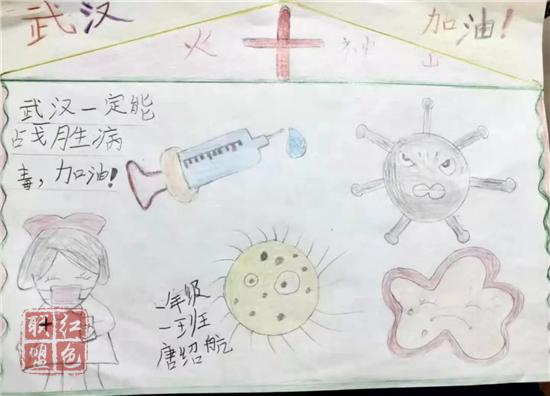 武汉 加油!
火 神 山
武汉一定能
战胜病
毒,加油!
一年级
一班
唐绍航
红色
联盟